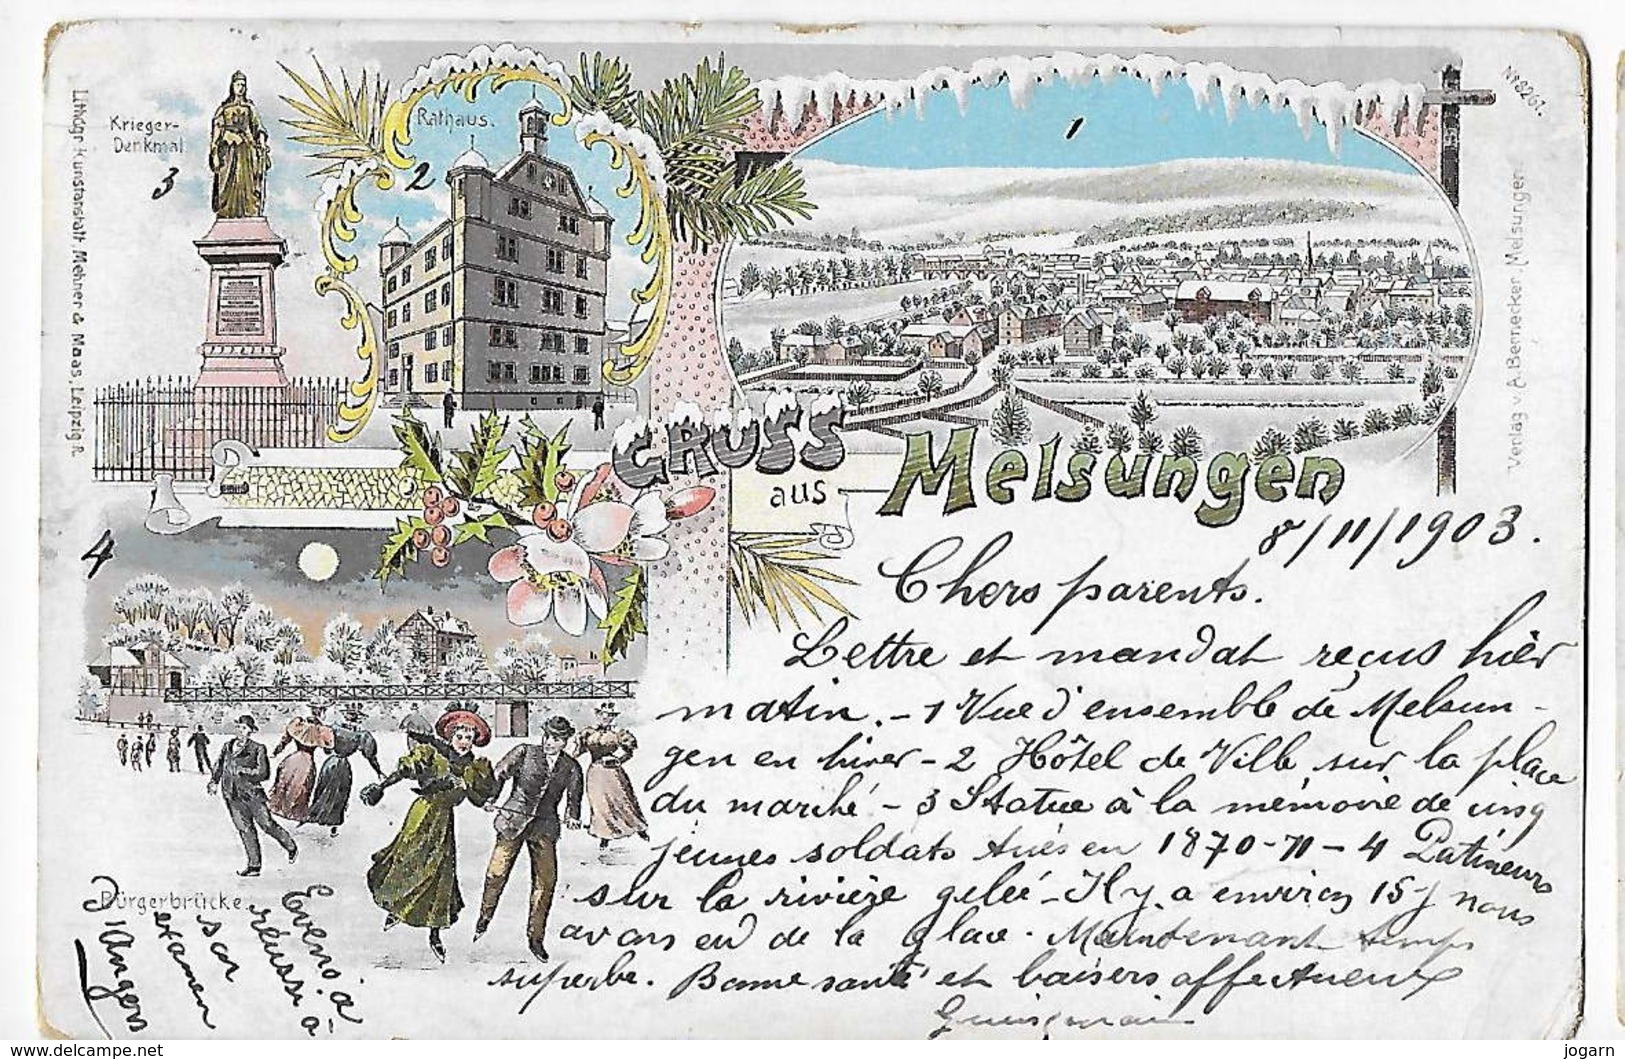 Krieger-
Denkmal
3
Rathaus.
2
1
4
Lithogr. Kunstanstalt Mehner & Maas, Leipzig R.
No 8267.
Verlag v. A. Bernecker, Melsungen.
GRUSS
aus
Melsungen
8/11/1903.
Chers parents.
Lettre et mandat reçus hièr
matin. - 1 Vue d'ensemble de Melsun-
gen en hiver - 2 Hôtel de Ville sur la place
du marché - 3 Statue à la mémoire de cinq
jeunes soldats tués en 1870-71 - 4 Patineurs
sur la rivière gelée - Il y a environ 15 j nous
avons eu de la glace. Maintenant temps
superbe. Bonne santé et baisers affectueux
Bürgerbrücke.
a
réussi à
son
examen
D'Angers
jogarn